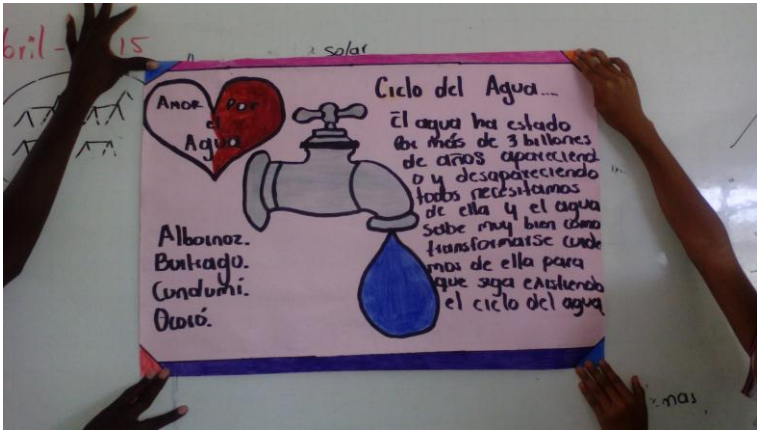 bril - 15
solar
Amor Por
el
Agua
Ciclo del Agua....
El agua ha estado
Por más de 3 billones
de años apareciend
o y desapareciendo
todos necesitamos
de ella y el agua
sabe muy bien como
transformarse cuide
mos de ella para
que siga existiendo
el ciclo del agua
Albornoz.
Buitrago.
Cundumí.
Ocoró.
mas